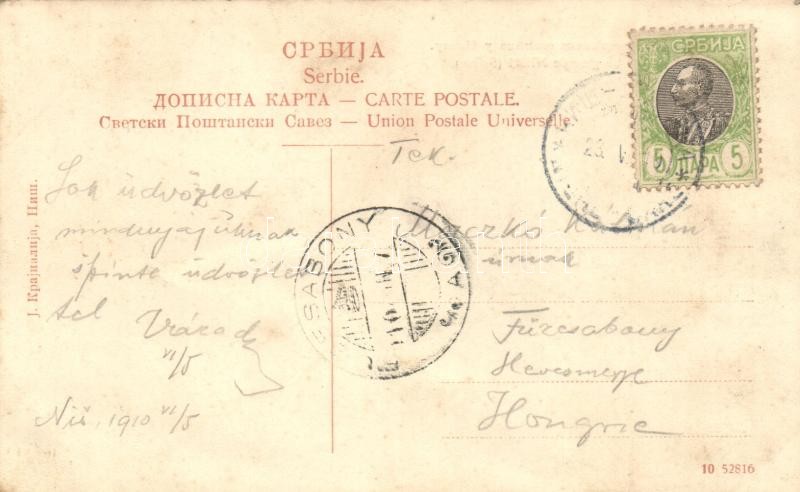 СРБИЈА
Serbie.
ДОПИСНА КАРТА — CARTE POSTALE.
Светски Поштански Савез — Union Postale Universelle.
СРБИЈА
5 ПАРА 5
Ј. Крајналија, Ниш.
Sok üdvözlet
mindnyájuknak
üdvözlet
Várad
VI/5
Niš, 1910 VI/5
Tek.
Kálmán
úrnak
Füzesabony
Hevesmegye
Hongrie
SABONY
10 52816